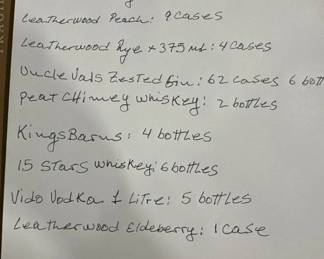 Leatherwood Peach: 9 cases
Leatherwood Rye + 375 ml: 4 cases
Uncle Vals Zested Gin: 62 cases 6 bott
Peat CHimey whiskey: 2 bottles
Kings Barns: 4 bottles
15 Stars whiskey: 6 bottles
Vido Vodka 1 Litre: 5 bottles
Leatherwood Eldeberry: 1 case